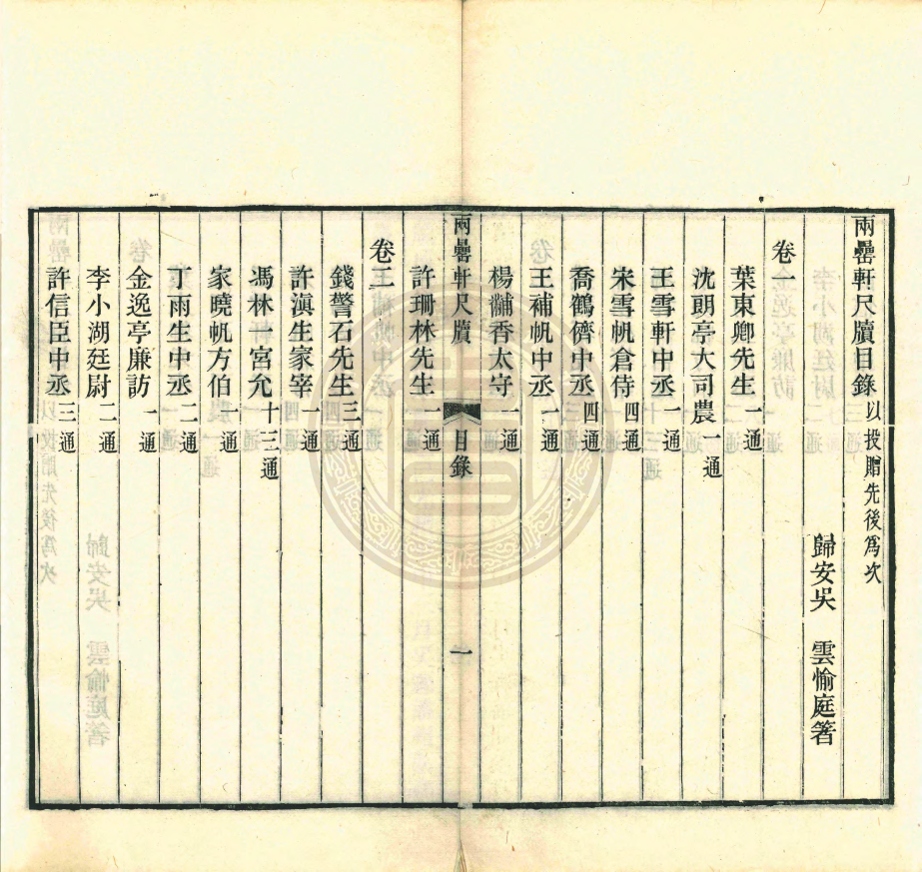 兩罍軒尺牘目錄以投贈先後爲次
歸安吳 雲愉庭箸
卷一
葉東卿先生一通
沈朗亭大司農一通
王雪軒中丞一通
宋雪帆倉侍四通
喬鶴儕中丞四通
王補帆中丞一通
楊黼香太守一通
兩罍軒尺牘 目錄 一
許珊林先生一通
卷二
錢警石先生三通
許滇生家宰一通
馮林一宮允十三通
家曉帆方伯一通
丁雨生中丞二通
金逸亭廉訪一通
李小湖廷尉二通
許信臣中丞三通